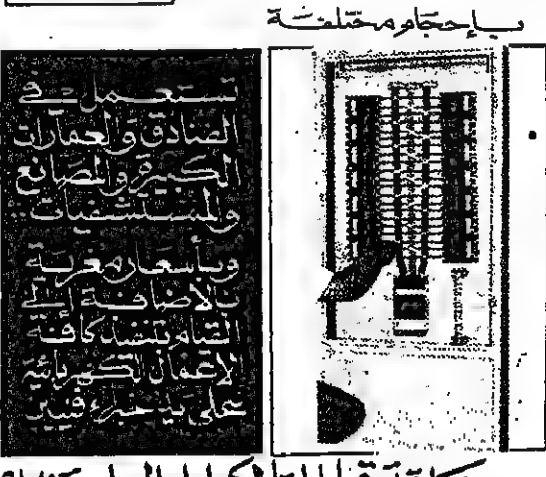 بإحجام مختلفة
تستعمل في
الفنادق والعقارات
الكبيرة والمصانع
والمستشفيات..
وبأسعار مغرية
بالاضافة إلى
القيام بتنفيذ كافة
الاعمال الكهربائية
على يد خبراء فنيين